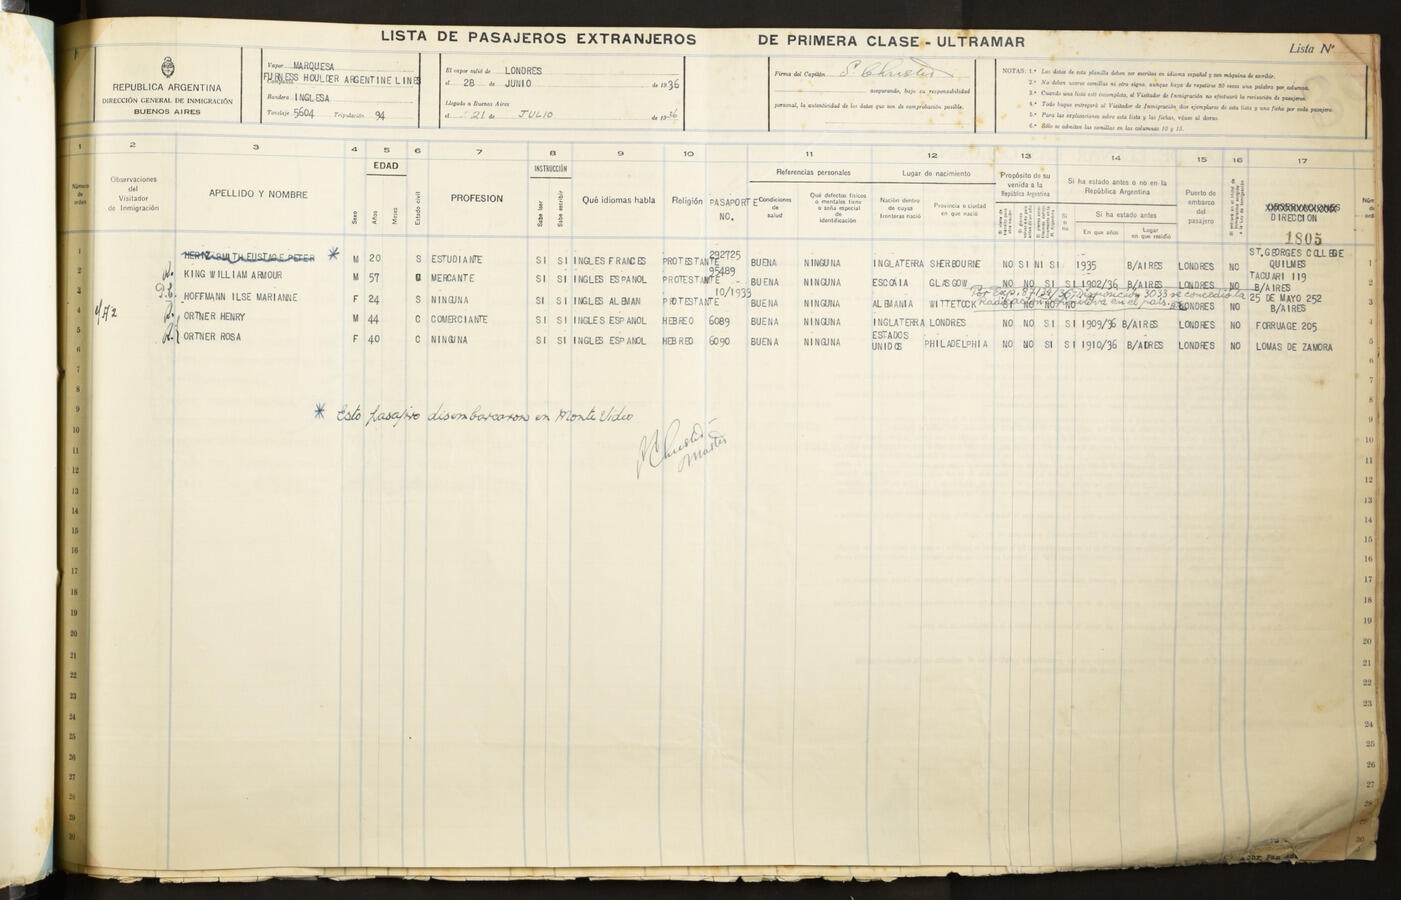 LISTA DE PASAJEROS EXTRANJEROS DE PRIMERA CLASE - ULTRAMAR
Lista Nº
REPUBLICA ARGENTINA
DIRECCIÓN GENERAL DE INMIGRACIÓN
BUENOS AIRES
Vapor MARQUESA
FURNESS HOULDER ARGENTINE LINES
Bandera INGLESA
Tonelaje 5604 Tripulación 94
El vapor salió de LONDRES
el 28 de JUNIO de 1936
Llegado a Buenos Aires
el 21 de JULIO de 1936
Firma del Capitán
asegurando, bajo su responsabilidad
personal, la autenticidad de los datos que son de comprobación posible.
NOTAS: 1.ª Los datos de esta planilla deben ser escritos en idioma español y con máquina de escribir.
2.ª No deben usarse comillas ni otro signo, aunque haya de repetirse 50 veces una palabra por columna.
3.ª Cuando una lista esté incompleta, el Visitador de Inmigración no efectuará la revisación de pasajeros.
4.ª Todo buque entregará al Visitador de Inmigración, dos ejemplares de esta lista y una ficha por cada pasajero.
5.ª Para las explicaciones sobre esta lista y las fichas, véase al dorso.
6.ª Sólo se admiten las comillas en las columnas 10 y 15.
1 2 3 4 5 6 7 8 9 10 11 12 13 14 15 16 17
Número de orden
Observaciones del Visitador de Inmigración
APELLIDO Y NOMBRE
Sexo
EDAD
Años
Meses
Estado civil
PROFESION
INSTRUCCIÓN
Sabe leer
Sabe escribir
Qué idiomas habla
Religión
PASAPORTE NO.
Referencias personales
Condiciones de salud
Qué defectos físicos o mentales tiene o seña especial de identificación
Lugar de nacimiento
Nación dentro de cuyas fronteras nació
Provincia o ciudad en que nació
Propósito de su venida a la República Argentina
Si ha estado antes o no en la República Argentina
Si o no
Si ha estado antes
En que años
Lugar en que residió
Puerto de embarco del pasajero
DIRECCION
1805
1 HERTZ-SMITH EUSTACE PETER * M 20 S ESTUDIANTE SI SI INGLES FRANCES PROTESTANTE 292725 BUENA NINGUNA INGLATERRA SHERBOURNE NO SI NI SI 1935 B/AIRES LONDRES NO ST.GEORGES COLLEGE QUILMES
2 KING WILLIAM ARMOUR M 57 MERCANTE SI SI INGLES ESPANOL PROTESTANTE 95489 BUENA NINGUNA ESCOCIA GLASGOW NO NO SI SI 1902/36 B/AIRES LONDRES NO TACUARI 119 B/AIRES
se concedió la
radicación definitiva en el país.
3 HOFFMANN ILSE MARIANNE F 24 S NINGUNA SI SI INGLES ALEMAN PROTESTANTE 10/1933 BUENA NINGUNA ALEMANIA WITTETOCK SI NO NO NO LONDRES NO 25 DE MAYO 252 B/AIRES
4 ORTNER HENRY M 44 C COMERCIANTE SI SI INGLES ESPANOL HEBREO 6089 BUENA NINGUNA INGLATERRA LONDRES NO NO SI SI 1909/36 B/AIRES LONDRES NO FORRUAGE 205
5 ORTNER ROSA F 40 C NINGUNA SI SI INGLES ESPANOL HEBREO 6090 BUENA NINGUNA ESTADOS UNIDOS PHILADELPHIA NO NO SI SI 1910/36 B/AIRES LONDRES NO LOMAS DE ZAMORA
* Esto pasajero disembarcaron en Monte Video
Master
6
7
8
9
10
11
12
13
14
15
16
17
18
19
20
21
22
23
24
25
26
27
28
29
30